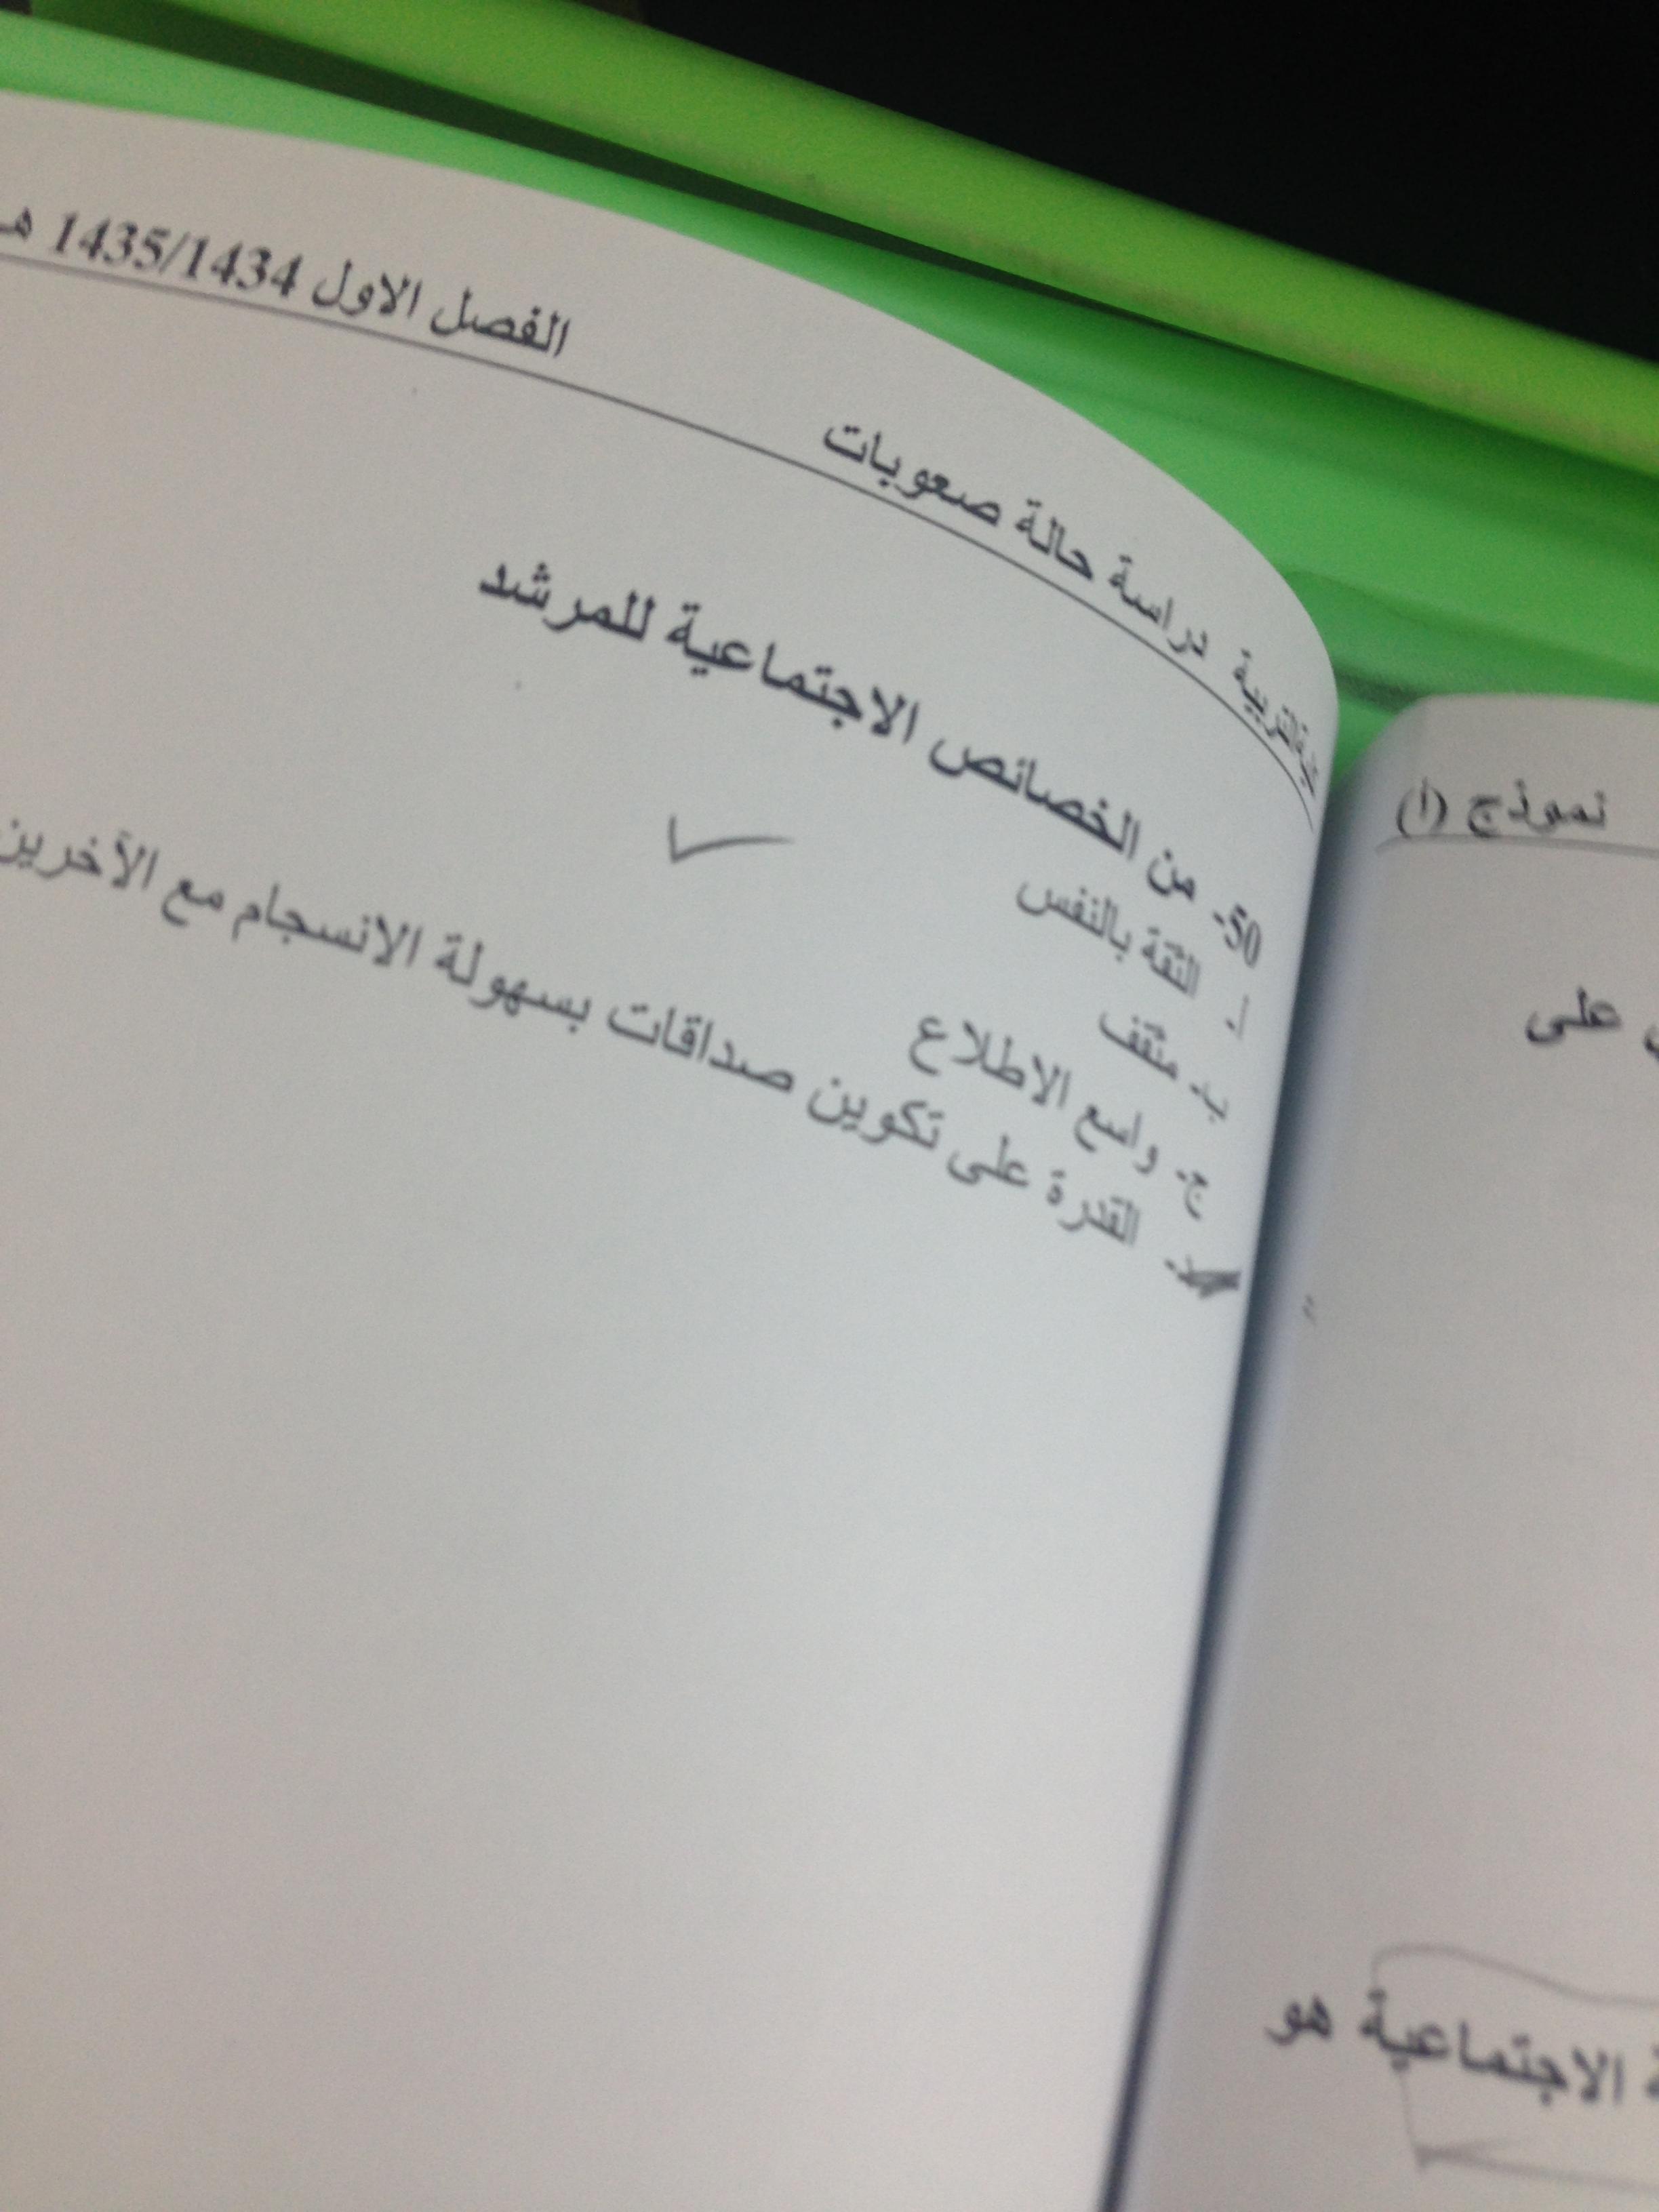 التربية دراسة حالة صعوبات الفصل الاول 1435/1434 هـ
50- من الخصائص الاجتماعية للمرشد
أ- الثقة بالنفس
ب- مثقف
ج- واسع الاطلاع
د- القدرة على تكوين صداقات بسهولة الانسجام مع الآخرين
نموذج (أ)
على
الاجتماعية هو